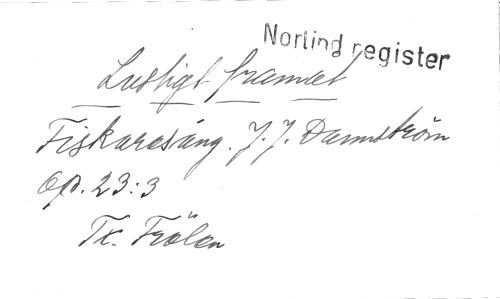 Norlind register
Lustigt framåt
Fiskaresång. J.J. Dannström
Op. 23:3
Tx. Frölén